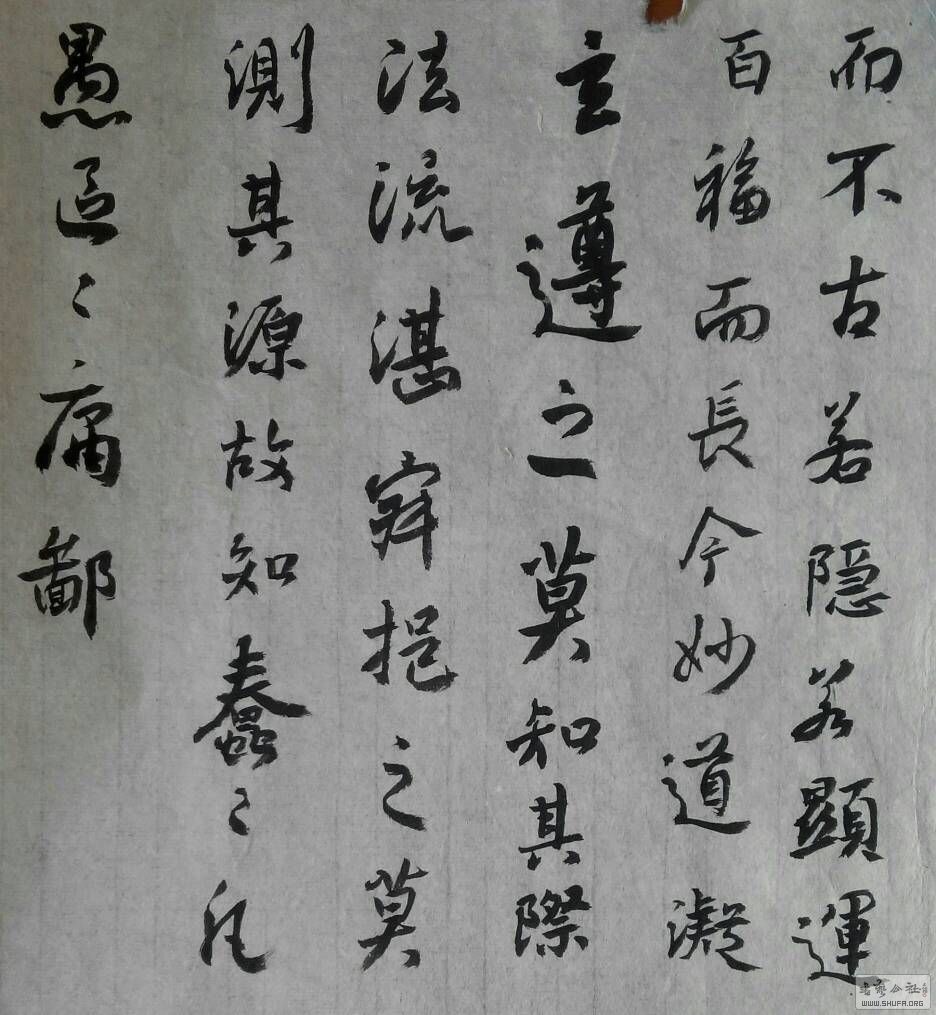 而不古若隐若顯運
百福而長今妙道凝
玄遵之莫知其際
法流湛寂挹之莫
測其源故知蠢〻凡
愚區〻庸鄙
書藝公社
WWW.SHUFA.ORG